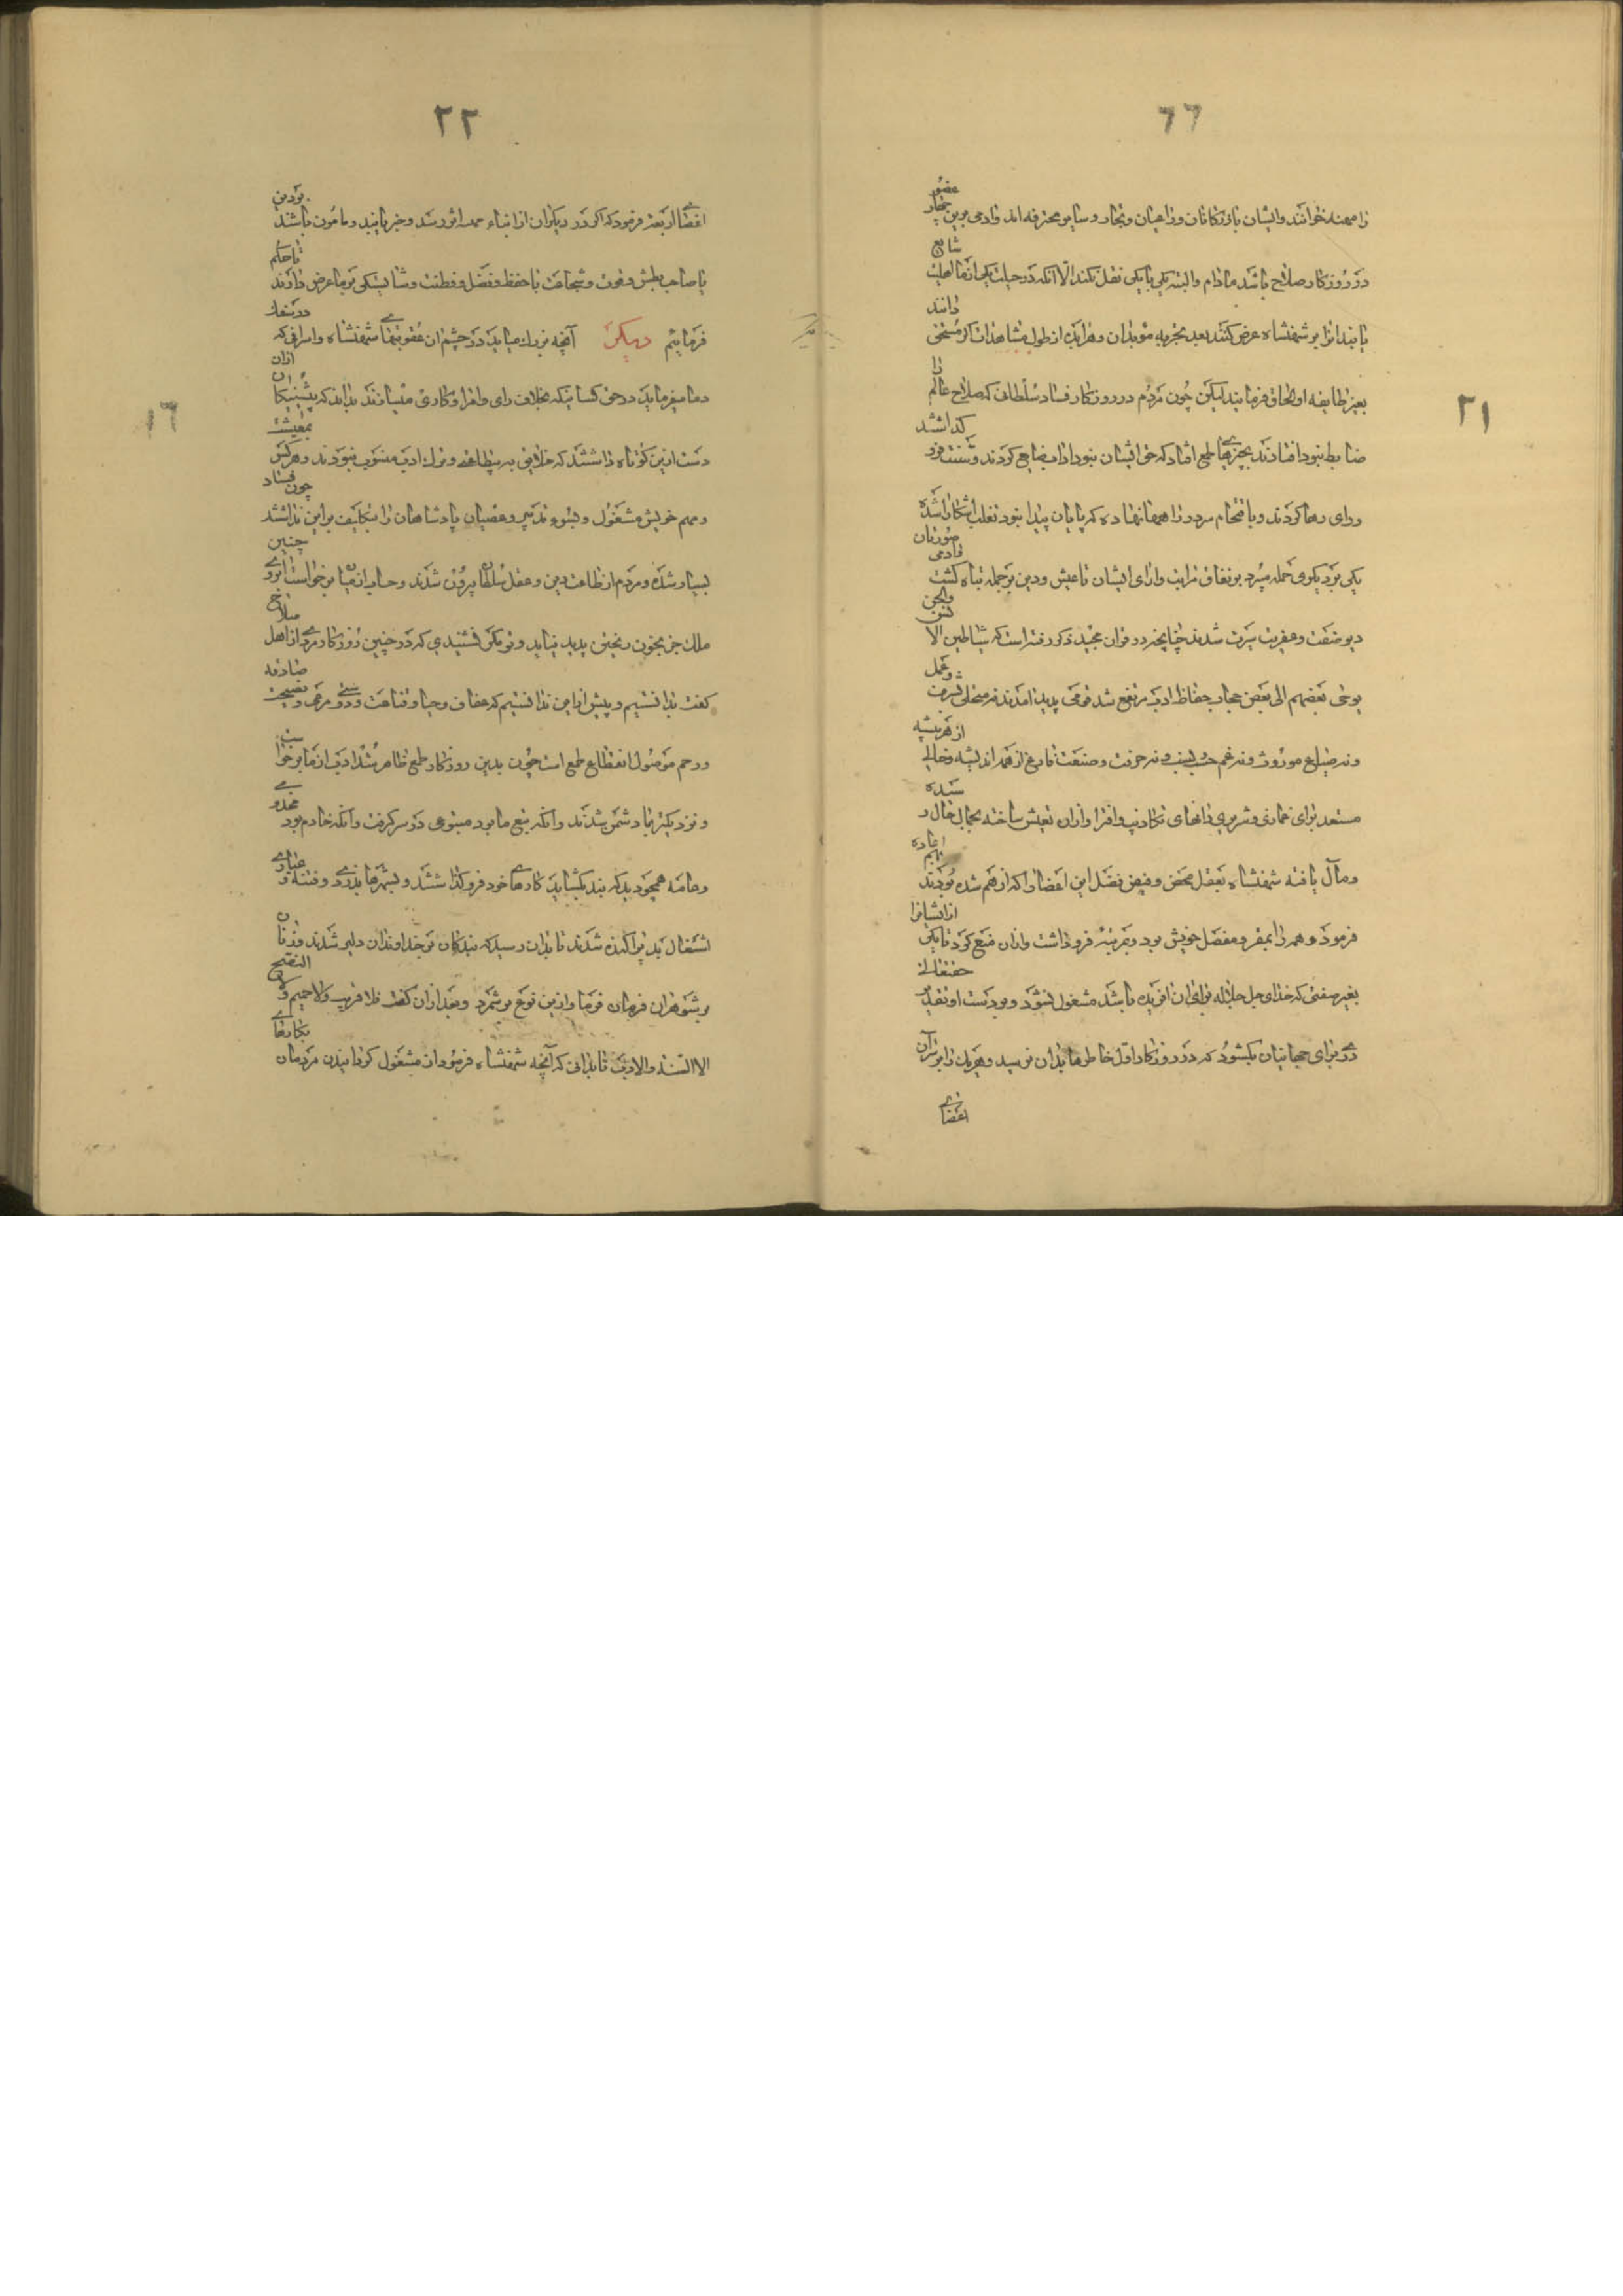 ٦٦
٢١
را مهنه خوانند وایشان بازرکانان وراعیان وتجار وسایر محترفه اند وادمی برین چهار عضو
در روزکار صلاح باشد مادام والبته یکی با یکی نقل نکنند الا انکه در جبلت یکی از ما اهلیت شایع
یابند انرا بر شهنشاه عرض کنند بعد تجربه موبدان وهرابده از طول مشاهدات اکر مستحق دانند
بغیر طایفه او الحاق فرمایند لیکن چون مردم در روزکار فساد وسلطانی که صلاح عالم را
ضابط نبود افتادند بچیزهایی طمع افتاد که حق ایشان نبود اداب ضایع کردند وسنت فرو کذاشتند
ورای رها کردند وباقتحام سر در راهها نهاده که پایان پیدا نبود تغلب اشکارا شده
یکی بر دیکری حمله میبرد بر تفاوت مراتب وارای ایشان تا عیش ودین بر جمله تباه کشت وادمی صورتان
دیو صفت وعفریت سیرت شدند چنانچه در قران مجید ذکر رفته است که شیاطین الانس والجن
یوحی بعضهم الی بعض حجاب حفاظ ادب مرتفع شد قومی پدید امدند نه متحلی بشرف وعمل
ونه ضیاع موروث ونه غم حسب ونسب ونه حرفت وصنعت فارغ از همه اندیشه وخالی از هر پیشه
مستعد برای غمازی وشریری وانهای تکاذیب وافترا وازان تعیش ساخته بجمال حال رسیده
ومآل یافته شهنشاه بعقل محض وفیض فضل این اعضا را که از هم شده بودند بهم اعاده
فرمود وهمه را بمقر ومفصل خویش برد وبمرتبه فرو داشت وازان منع کرد تا یکی از ایشانرا
بغیر صفتی که خدای جل جلاله برای ان افریده باشد مشغول نشود وبر دست او تقدیر حقتعالی
دری برای جهانیان بکشود که در روزکار اول خاطرها بدان نرسید وهریک را بر سرآن
اعضای
٢٢
١٦
اعضا اربعه فرمود که اکر در دیکران از ابناء مهنه اثر رشد وخیر یابند ومامون باشند بر دین
یا صاحب بطش وقوت وشجاعت یا حفظ وفضل وفطنت وشایستکی بر ما عرض دارند تا حکم
فرماییم دیکر آنچه بزرک میاید در چشم ان عقوبتهای شهنشاه واسرافی که در سفک
دما میفرماید در حق کسانیکه بخلاف رای وامر او کاری میسازند بداند که پیشینیکان ازان
دست ازین کوتاه داشتند که خلایق به بیطاعتی وترک ادب منسوب نبودند وهرکس بمعیشت
ومهم خویش مشغول وبسوء تدبیر وعصیان پادشاهان را بتکلیف برین نداشتند چون فساد
بسیار شده ومردم از طاعت دین وعقل وسلطان بیرون شدند وحساب از میان برخواست ابروی چنین
ملک جز بخون ریختن پدید نیاید وتو مکر نشنیدی که در چنین روزکار مردی از اهل صلاح
کفت ندانستیم وپیش ازین ندانستیم که عفاف وحیا وقناعت ودوستی مرعی ونصیحت صادقه
ورحم موصول انقطاع طمع است چون بدین روزکار طمع ظاهر شد ادب از ما برخواست
ونزدیکتر بما دشمن شدند وانکه تبع ما بود متبوعی در سر کرفت وانکه خادم بود مخدومی
وعامه همچو دیو که بند بکشاید کارها خود فرو کذاشتند وبشهرها بدزدی وفتنه وعیاری
اشتغال بد پراکنده شدند تا بدان رسید که بندکان بر خداوندان دلیر شدند وزنان
بر شوهران فرمان فرما وازین نوع بر شمرد وبعد ازان کفت فلا قریب ولا حمیم ولا النصیح
الا السنة والادب تا بدانی که آنچه شهنشاه فرمود از مشغول کردانیدن مردمان بکارهای